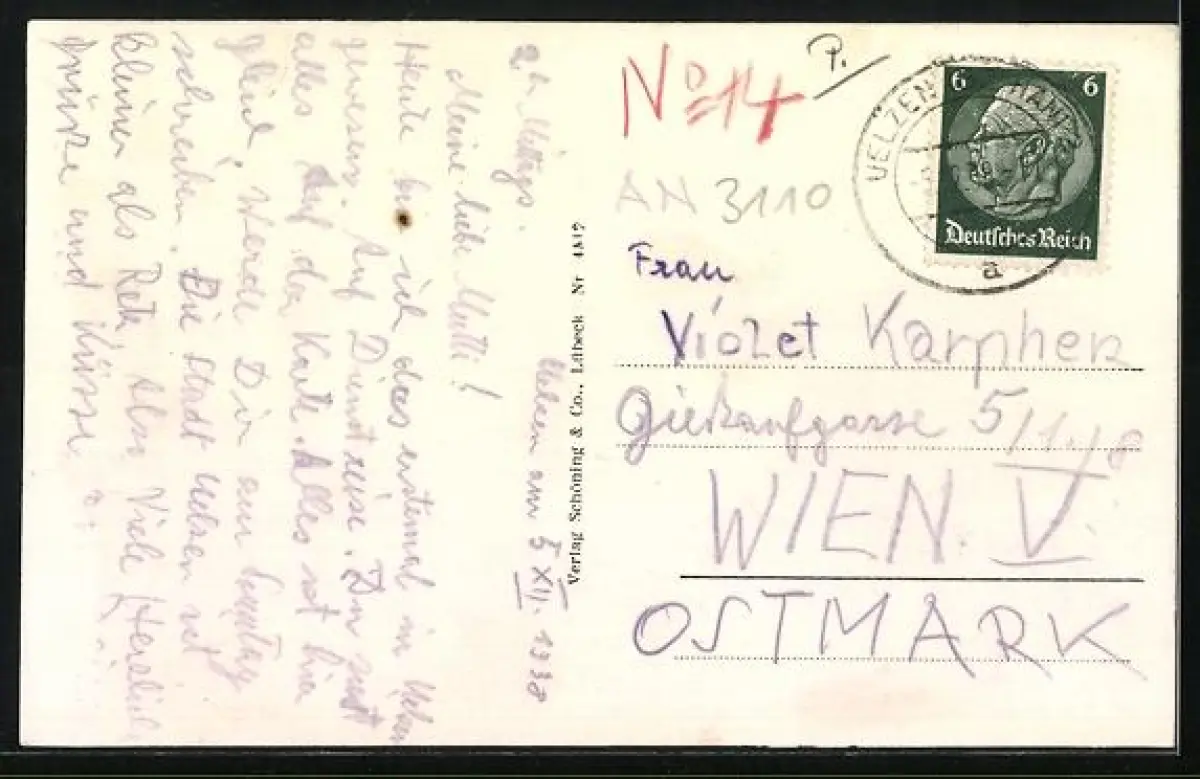 Uelzen am 5 XII. 1938
2h Mittags.
Meine liebe Mutti!
Heute bin ich das erstemal in Uelzen
gewesen. Auf Dienstreise. Du siehst
alles auf der Karte. Alles ist hier
gleich. Werde Dir am Sonntag
schreiben. Die Stadt Uelzen ist
kleiner als Also Viele Herzlich
Grüsse und Küsse
Verlag Schöning & Co., Lübeck Nr
No 14
P.
AN 3110
6 6
Deutsches Reich
UELZEN
a
Frau
Violet Karpher
5/1./8
WIEN V.
OSTMARK